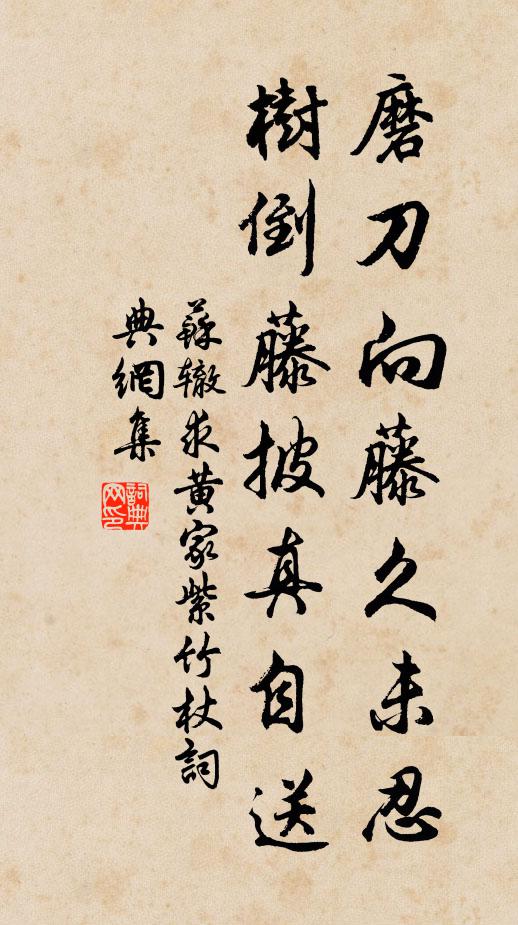 磨刀向藤久未忍
樹倒藤披真自送
蘇辙求黄家紫竹杖詞
典網集
詞典
网印